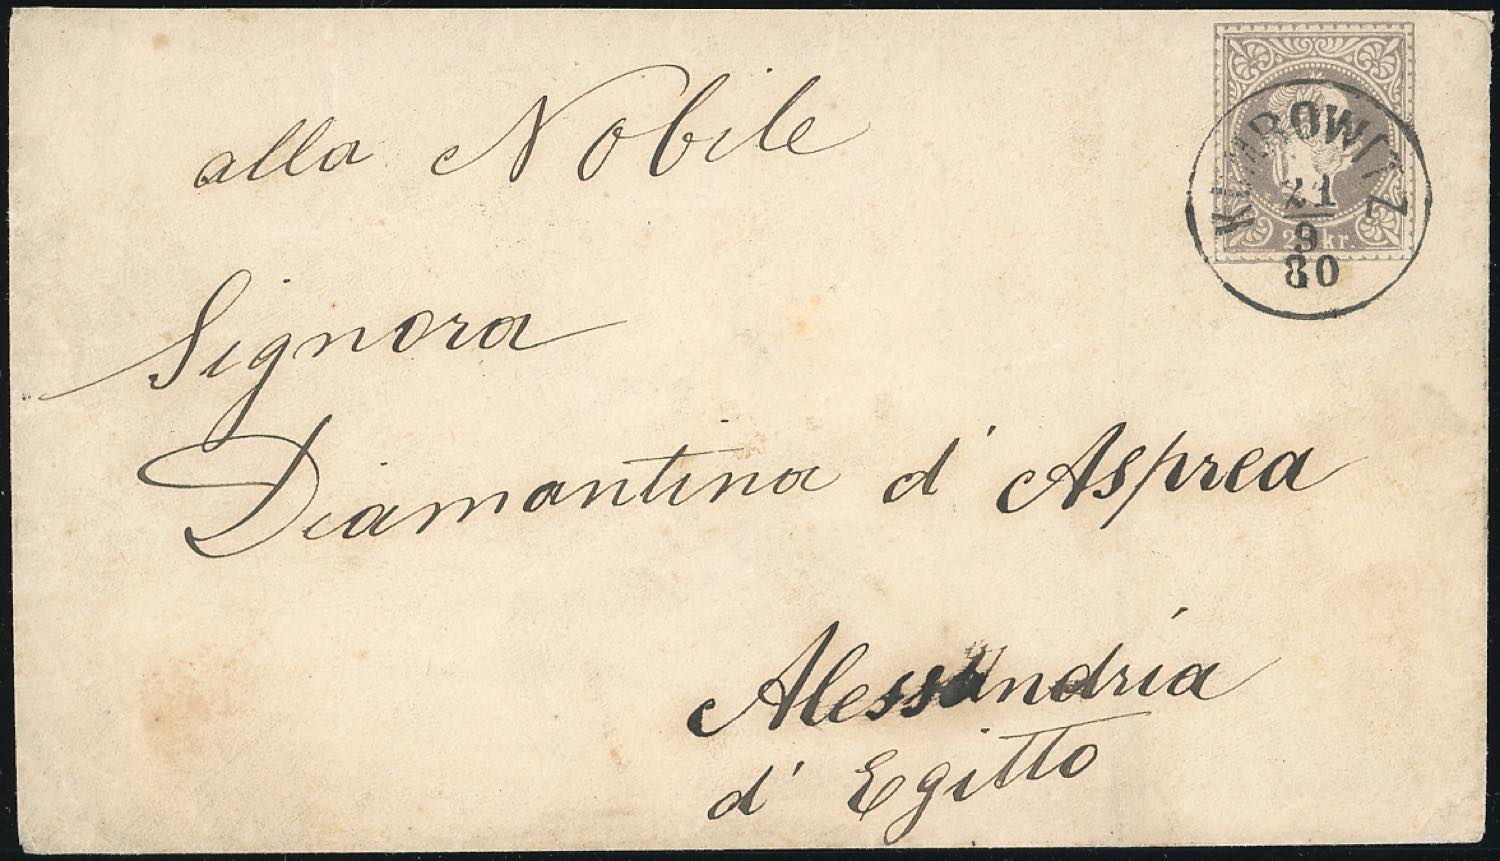 alla Nobile
Signora
Diamantina d'Asprea
Alessandria
d'Egitto
21
9
80
kr.